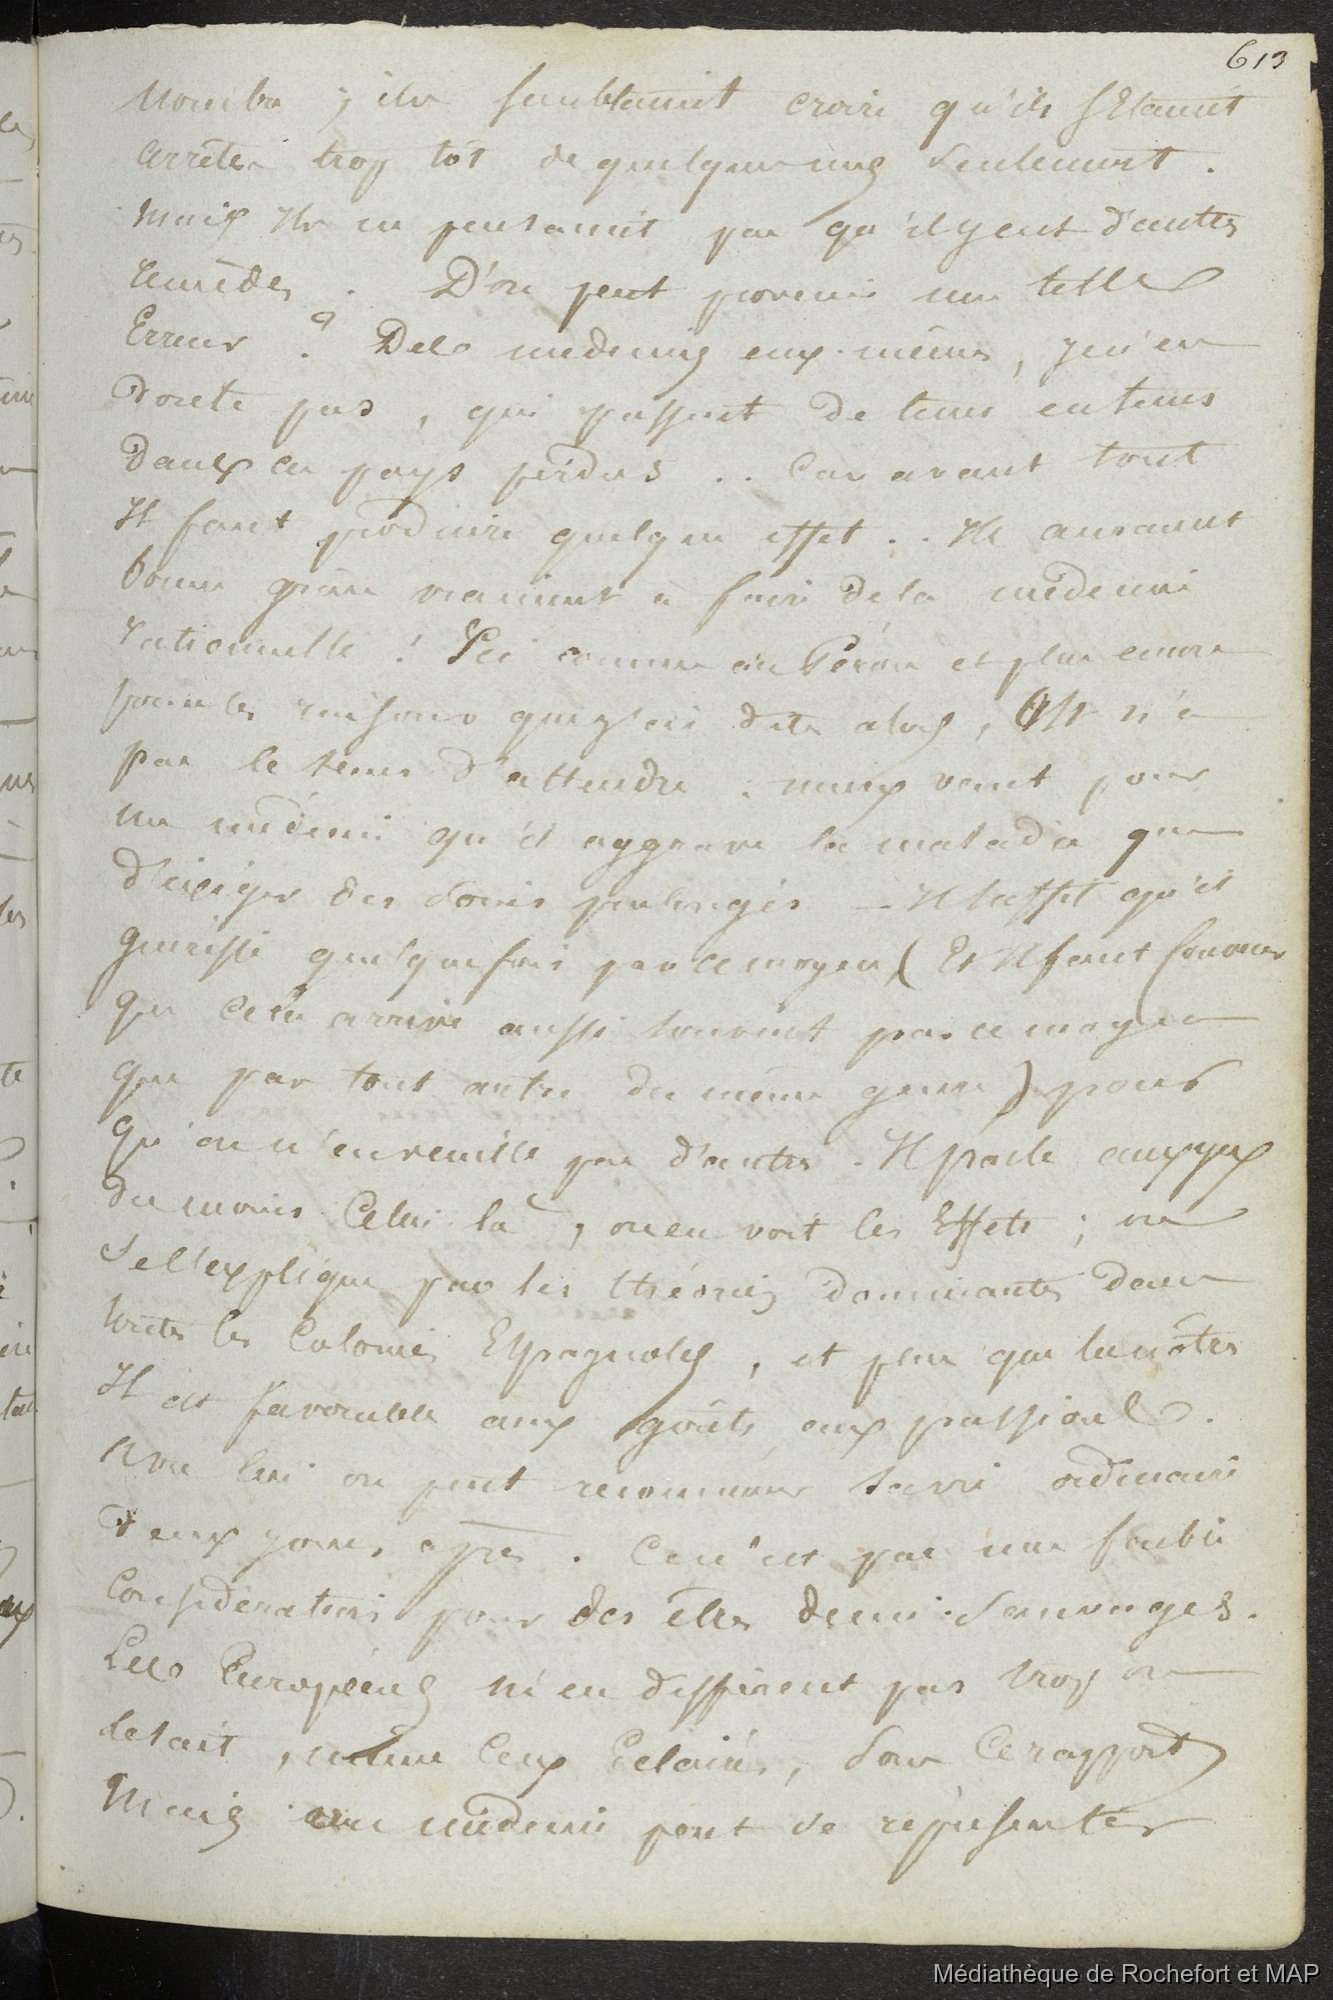 613
nombre ; ils semblaient croire qu'ils s'Etaient
arrêtés trop tôt de quelques uns seulement.
Mais Ils ne pensaient pas qu'il y eut d'autres
remèdes. D'où peut provenir une telle
Erreur ? Des medecins eux-mêmes, je n'en
doute pas, qui passent de tems en tems
dans ces pays perdus .. Car avant tout
Il faut produire quelque effet .. Ils auraient
bonne grâce vraiment à faire de la médecine
rationnelle ! Ici comme au Pérou et plus encore
pour les raisons que j'ai dites alors, On n'a
pas le tems d'attendre : mieux vaut pour
un médecin qu'il aggrave la maladie que
d'exiger des soins prolongés — Il suffit qu'il
guerisse quelquefois par ce moyen (Et Il faut
que cela arrive aussi souvent par ce moyen
que par tout autre du même genre) pour
qu'on n'en veuille pas d'autres. Il parle aux yeux
du moins Celui là, on en voit les Effets ; on
se l'explique par les théories dominantes dans
toutes les Colonies Espagnoles, et plus que les nôtres
Il est favorable aux goûts, aux passions.
Avec lui on peut recommencer sa vie ordinaire
deux jours après. Ce n'est pas une faible
Considération pour des êtres demi-Sauvages.
Les Européens n'en diffèrent pas trop on
le sait, même Ceux Eclairés, sous Ce rapport
Mais un médecin peut se représenter
Médiathèque de Rochefort et MAP